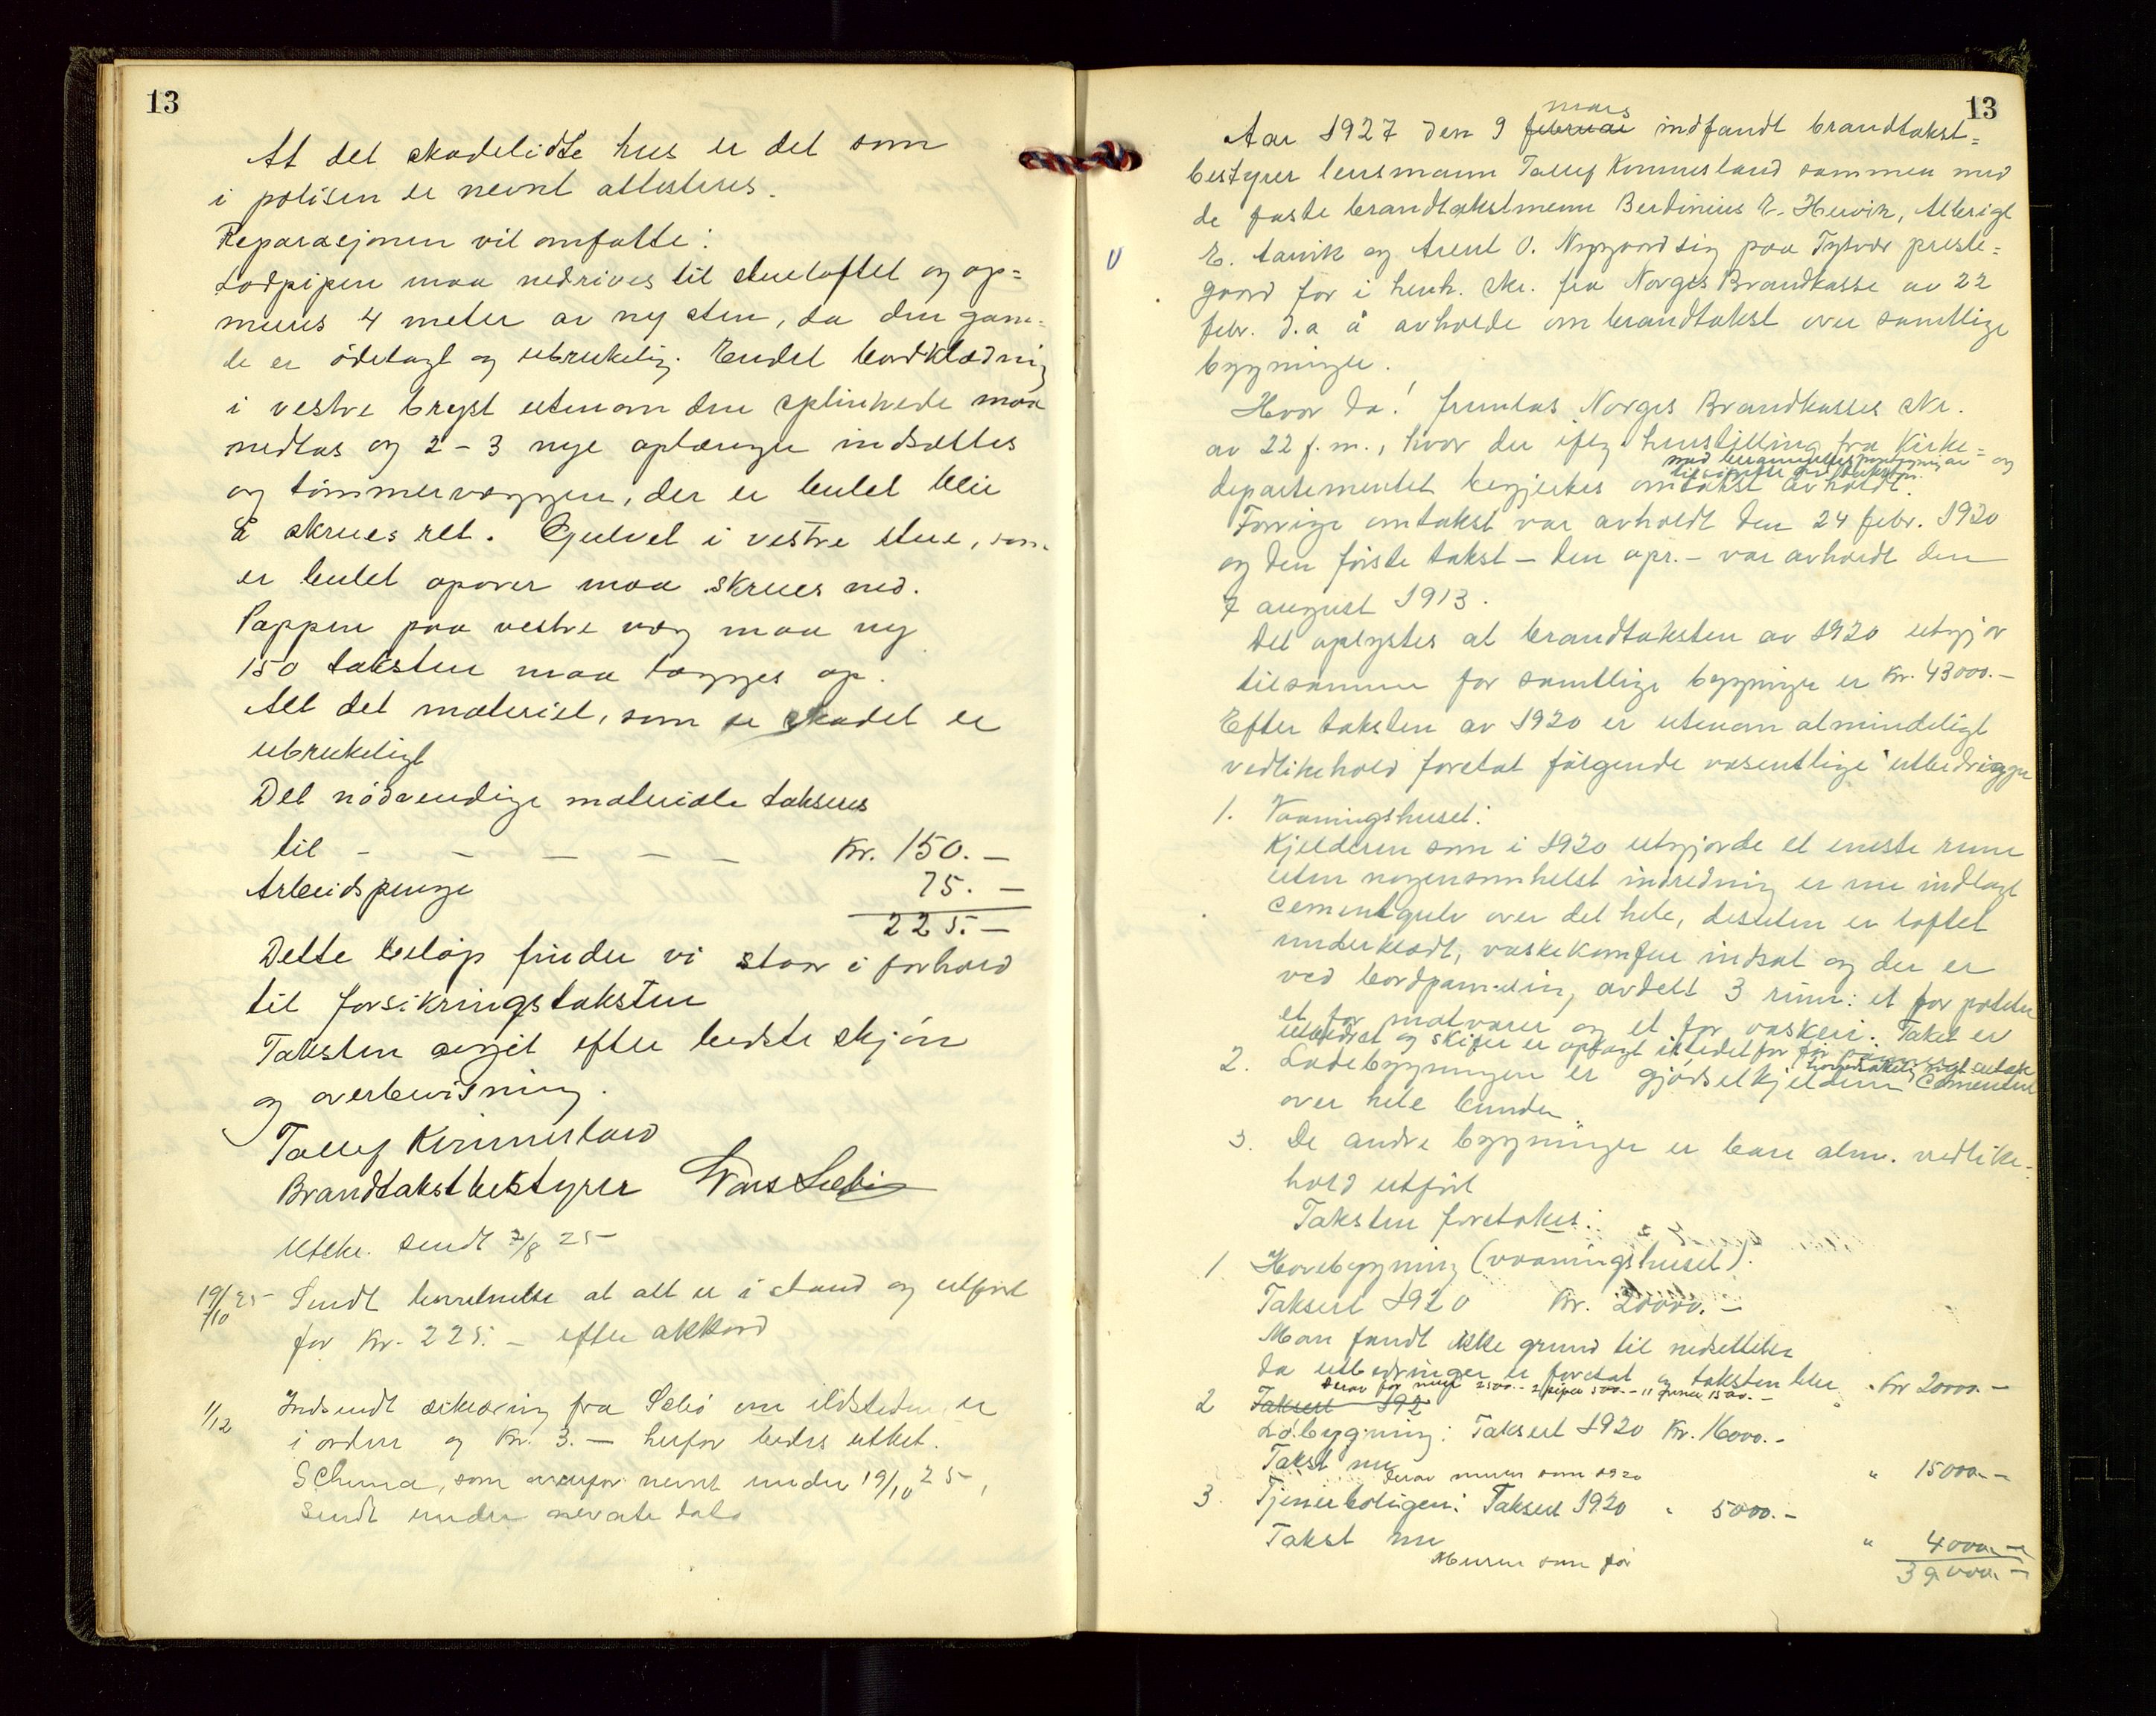 13
At det skadelidte hus er det som
i polisen er nevnt attesteres.
Reparasjonen vil omfatte:
Lodpipen maa nedrives til stueloftet og op=
mures 4 meter av ny sten, da den gam=
le er ödelagt og ubrukelig. Endel bordklædning
i vestre bryst utenom den splintrede maa
nedtas og 2-3 nye oplænger indsættes
og tömmervæggen, der er bulet blir
å skrues ret. Gulvet i vestre stue, som
er bulet opover maa skrues ned.
Pappen paa vestre væg maa ny
150 taksten maa lægges op.
Alt det materiel, som er skadet er
ubrukeligt
Det nödvendige materiale takseres
til - - - - - Kr. 150.-
Arbeidspenge 75.-
225.-
Dette belöp finder vi staar i forhold
til forsikringstaksten
Taksten avgit efter bedste skjön
og overbevisning.
Tallef Kinnesland
Brandtakstbestyrer
Utskr. sendt 7/8 25
19/10 25 Sendt beretnelse at alt er i stand og utfört
for Kr. 225.- efter akkord
1/12 Indsendt erklæring fra Sebö om ildstedene er
i orden og Kr. 3.- herfor bedes utbet.
Schema, som ovenfor nevnt under 19/10 25,
sendt under nevnte dato
13
mars
Aar 1927 den 9 februar indfandt brandtakst=
bestyrer lensmann Tallef Kinnesland sammen med
de faste brandtakstmenn Berdinius E. Hervik, Albrigt
E. Aarvik og Arent O. Nygaard sig paa Tysvær preste=
gaard for i henh. skr. fra Norges Brandkasse av 22
febr. d.a å avholde om brandtakst over samtlige
bygninger.
Hvor da! fremlas Norges Brandkasses skr.
av 22 f.m., hvor der iflg henstilling fra Kirke=
departementet begjertes omtakst avholdt.
Forrige omtakst var avholdt den 24 febr. 1920
og den förste takst - den opr. - var avholdt den
7 august 1913.
Det oplystes at brandtaksten av 1920 utgjör
tilsammen for samtlige bygninger er Kr. 43000.-
Efter taksten av 1920 er utenom almindeligt
vedlikehold foretat fölgende væsentlige utbedringer
1. Vaaningshuset:
Kjelderen som i 1920 utgjorde et eneste rum
uten nogensomhelst indredning er nu indlagt
cementgulv over det hele, desuten er loftet
underklædt, vaskekomfur indsat og der er
ved bordpanelin, avdelt 3 rum: et for poteter
et for matvarer og et for vaskeri. Taket er
utbedret og skifer er oplagt istedet for
2. Lodebygningen er gjödselkjelderen cementert
over hele bunden.
3. De andre bygninger er bare alm. vedlike=
hold utfört
Taksten foretokes:
1 Hovebygning (vaaningshuset).
Taksert 1920 Kr. 20000.-
Man fandt ikke grund til nedsettelse
da utbedringer er foretat og taksten blir Kr 20000.-
derav for mur 2500.- 2 piper 500.- 11 1500.-
2 Taksert 192
Lö.bygning: Taksert 1920 Kr. 16000.-
Takst nu " 15000.-
derav muren som 1920
3. Tjenerboligen: Taksert 1920 " 5000.-
Takst nu " 4000.-
Muren som för 39000.-